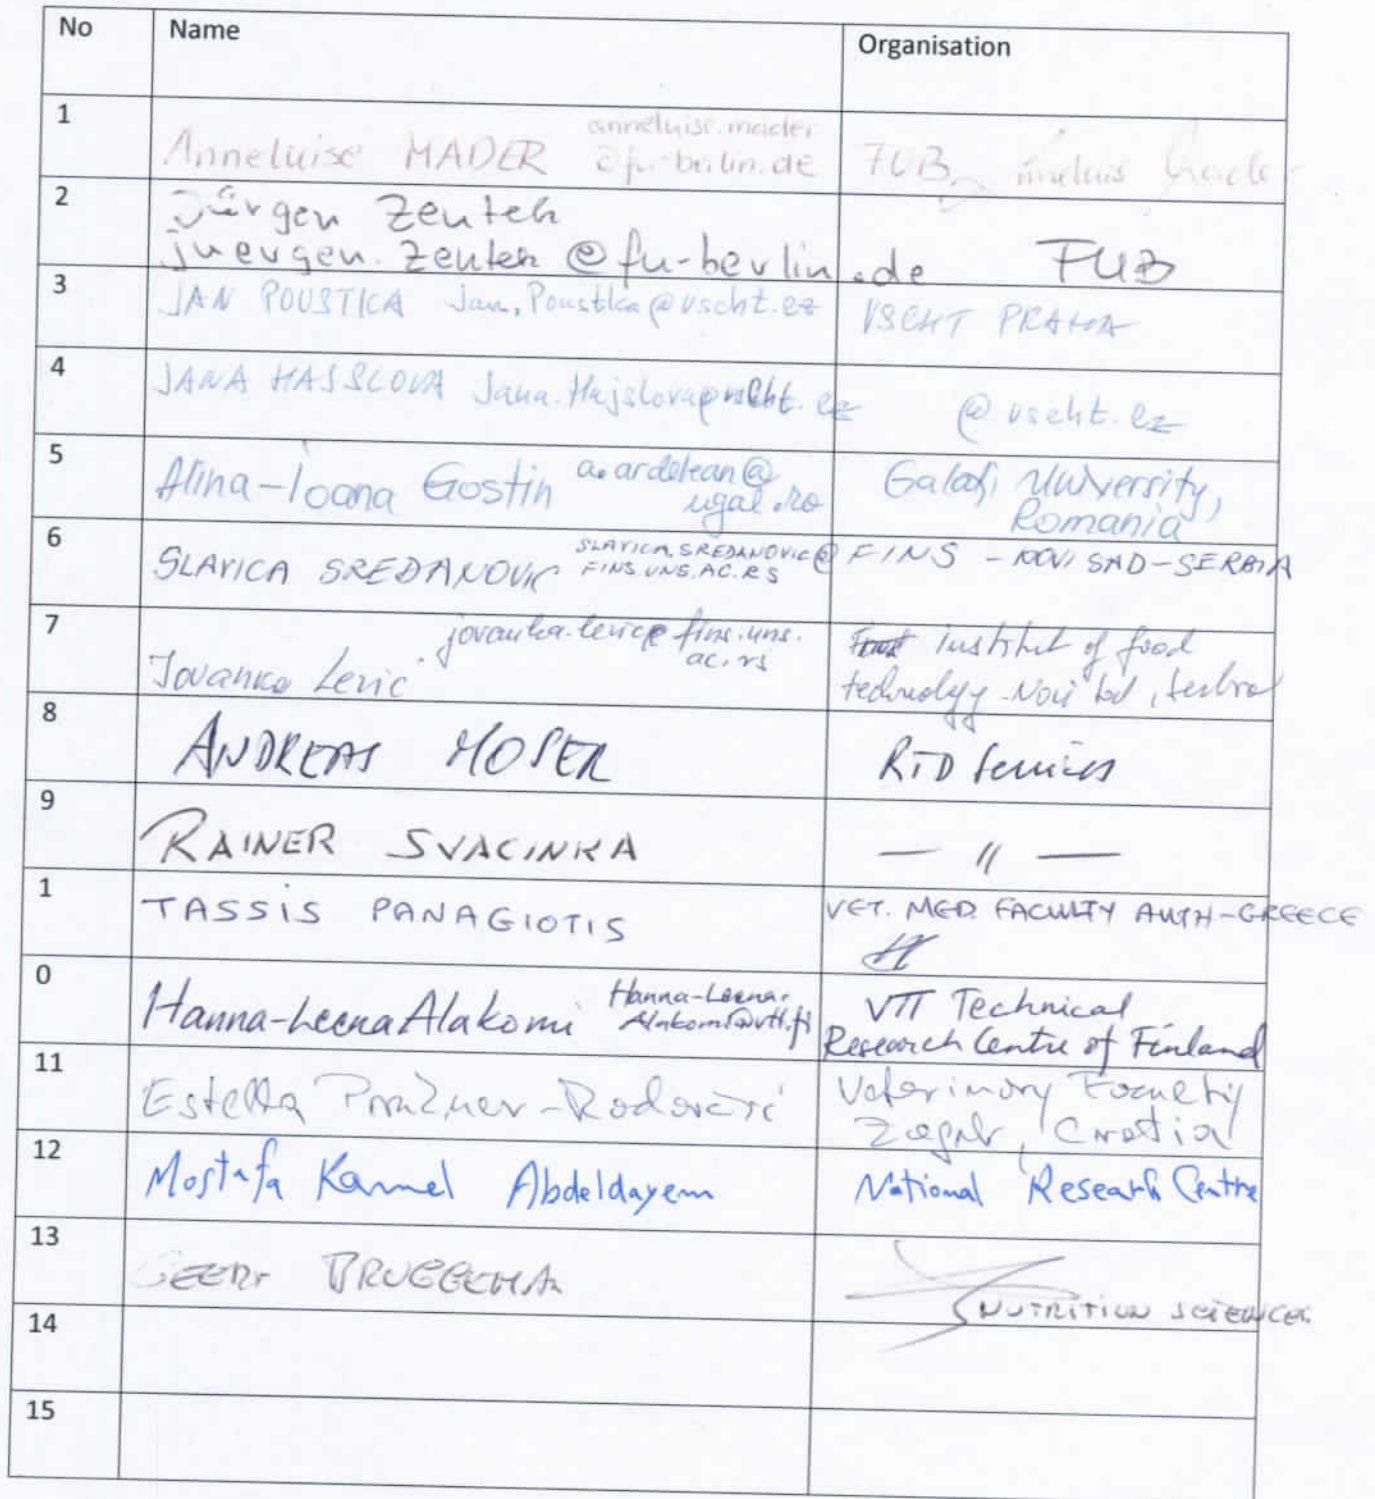 No Name Organisation
1 Anneluise MADER anneluise.mader @fu-berlin.de FUB
2 Jürgen Zentek
juergen.zentek@fu-berlin.de FUB
3 JAN POUSTKA Jan.Poustka@vscht.cz VSCHT PRAHA
4 JANA HAJSLOVA Jana.Hajslova@vscht.cz @vscht.cz
5 Alina-Ioana Gostin a.ardelean@ Galati University,
ugal.ro Romania
6 SLAVICA SREDANOVIC SLAVICA.SREDANOVIC@ FINS - NOVI SAD-SERBIA
FINS.UNS.AC.RS
7 jovanka.levic@fins.uns. institut of food
Jovanka Levic ac.rs technology - Novi Sad, Serbia
8 ANDREAS MOSER RTD Services
9 RAINER SVACINKA — 〃 —
1 TASSIS PANAGIOTIS VET. MED. FACULTY AUTH-GREECE
0 Hanna-Leena Alakomi Hanna-Leena. VTT Technical
Alakomi@vtt.fi Research Centre of Finland
11 Estella Veterinary Faculty
Zagreb, Croatia
12 Mostafa Kamel Abdeldayem National Research Centre
13 GEERT BRUGGEMAN NUTRITION SCIENCES
14
15